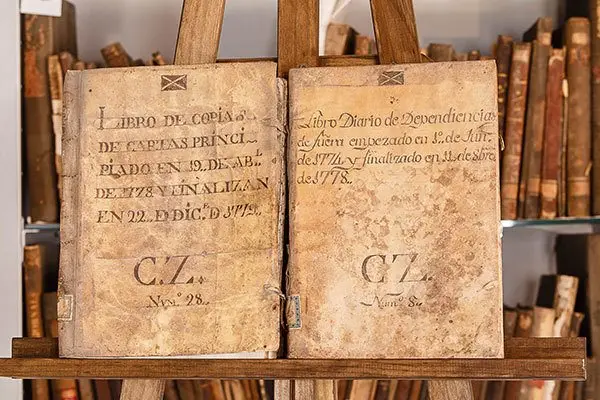 LIBRO DE COPIAS
DE CARTAS PRINCI-
PIADO EN 19., DE AB.ˡ
DE 1778 Y FINALIZAN
EN 22., D DIC.ᵉ D 1779.,
C.Z.
NUM.º 28.,
Libro Diario de Dependiencias
de fuera empezado en 1.º de Jun.
de 1774 y finalizado en 11 de 8bre
de 1778.,
CZ.
Num.º 8.,